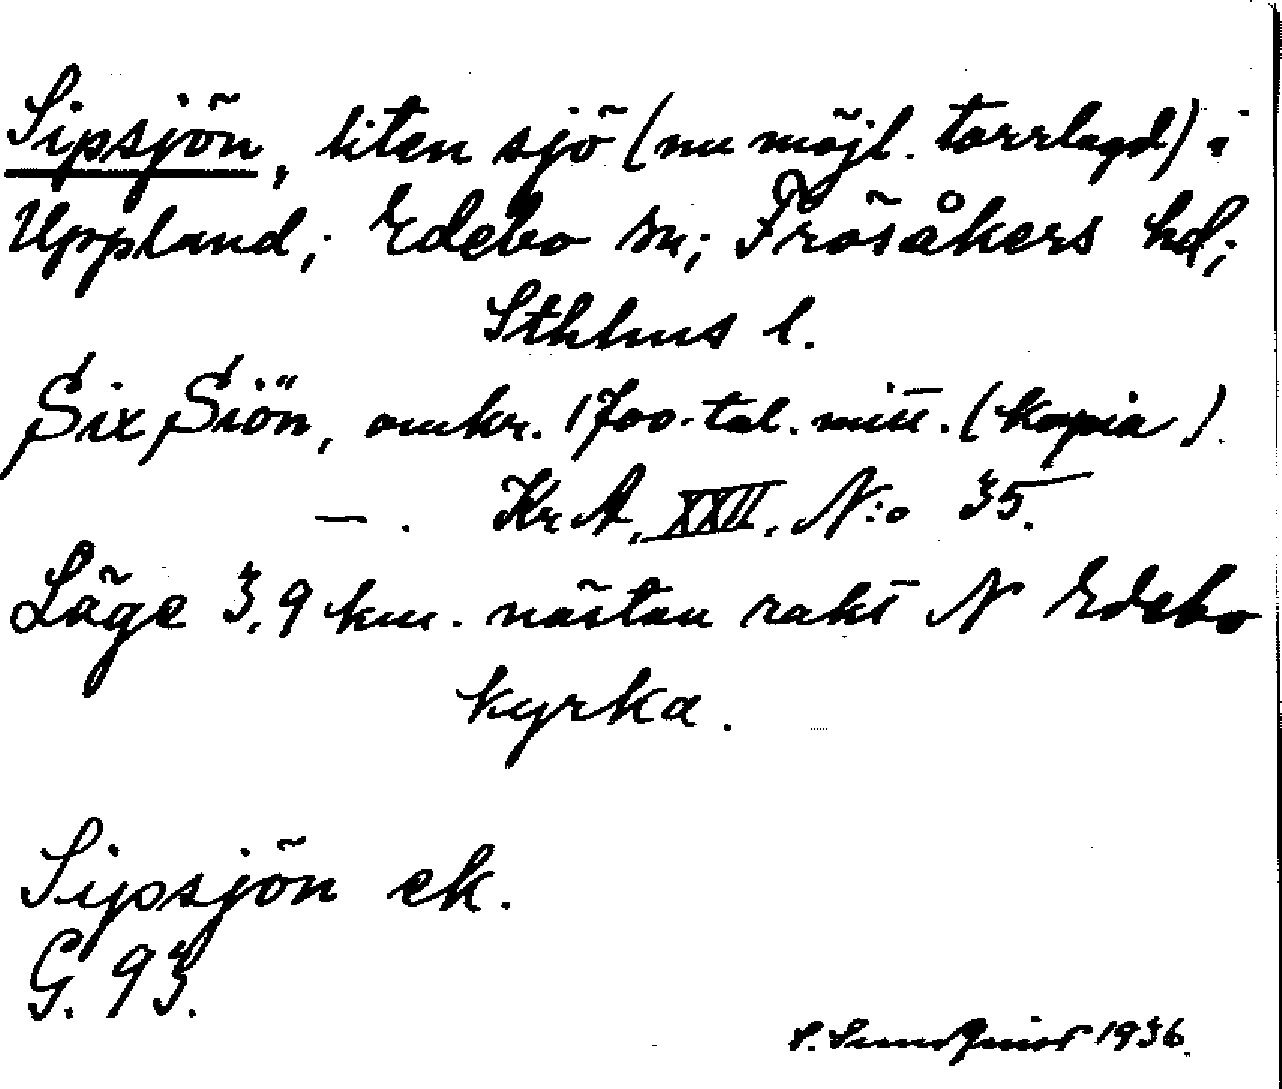 Sipsjön, liten sjö (nu möjl. torrlagd) i
Uppland; Edebo sn; Frösåkers hd;
Sthlms l.
Six Siön, omkr. 1700-tal. mitt. (kopia).
— . Kr A, XXII, N:o 35.
Läge 3,9 km. nästan rakt N Edebo
kyrka.
Sipsjön ek.
G. 93.
S. Sundquist 1936.